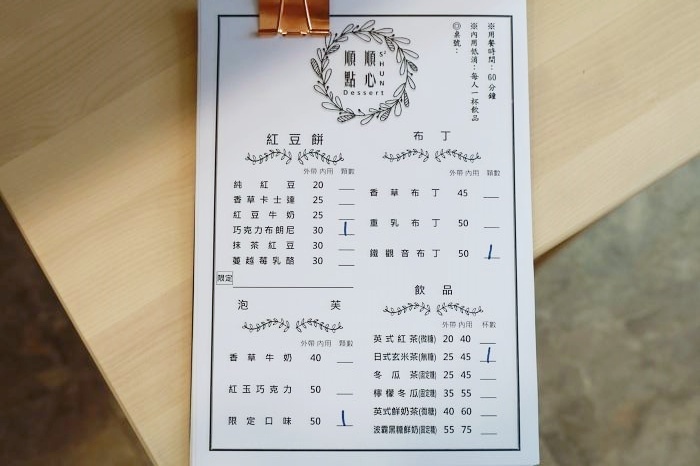 ※用餐時間：60分鐘
※內用低消：每人一杯飲品
◎桌號：
順順
點心
S² HUN
Dessert
紅豆餅
外帶 內用 顆數
純紅豆 20
香草卡士達 25
紅豆牛奶 25
巧克力布朗尼 30 1
抹茶紅豆 30
蔓越莓乳酪 30
限定
泡芙
外帶 內用 顆數
香草牛奶 40
紅玉巧克力 50
限定口味 50 1
布丁
外帶 內用 顆數
香草布丁 45
重乳布丁 50
鐵觀音布丁 50 1
飲品
外帶 內用 杯數
英式紅茶(微糖) 20 40
日式玄米茶(無糖) 25 45 1
冬瓜茶(固定糖) 25 45
檸檬冬瓜(固定糖) 35 55
英式鮮奶茶(微糖) 40 60
波霸黑糖鮮奶(固定糖) 55 75